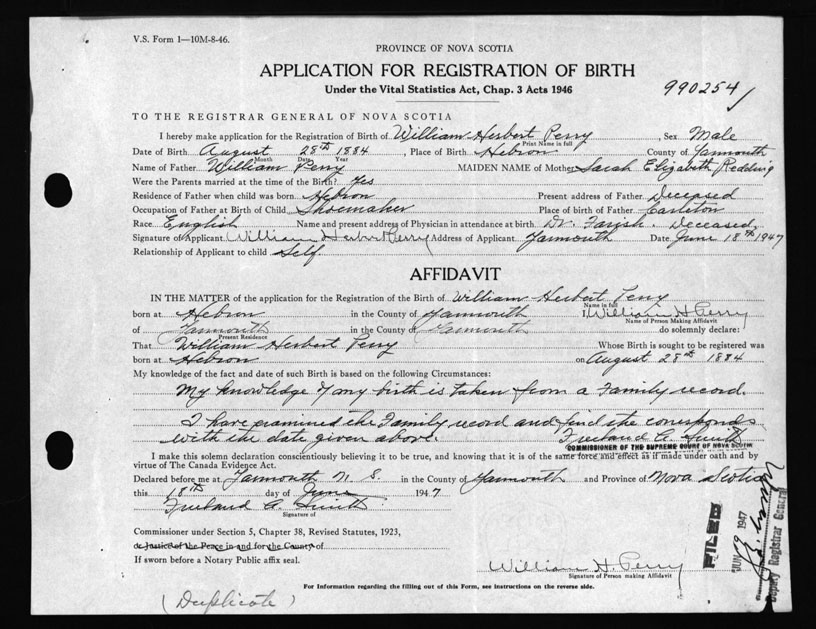 V.S. Form 1—10M-8-46.
PROVINCE OF NOVA SCOTIA
APPLICATION FOR REGISTRATION OF BIRTH
Under the Vital Statistics Act, Chap. 3 Acts 1946
990254
TO THE REGISTRAR GENERAL OF NOVA SCOTIA
I hereby make application for the Registration of Birth of William Herbert Perry, Sex Male
Print Name in full
Date of Birth August 28th 1884, Place of Birth Hebron County of Yarmouth
Month Date Year
Name of Father William Perry MAIDEN NAME of Mother Sarah Elizabeth Redding
Were the Parents married at the time of the Birth? Yes
Residence of Father when child was born Hebron Present address of Father Deceased
Occupation of Father at Birth of Child Shoemaker Place of birth of Father Carleton
Race English Name and present address of Physician in attendance at birth Dr. Farish. Deceased.
Signature of Applicant William Herbert Perry Address of Applicant Yarmouth Date June 18th 1947
Relationship of Applicant to child Self.
AFFIDAVIT
IN THE MATTER of the application for the Registration of the Birth of William Herbert Perry
born at Hebron in the County of Yarmouth I, William H. Perry
Name in full
Name of Person Making Affidavit
of Yarmouth in the County of Yarmouth do solemnly declare:
Present Residence
That William Herbert Perry Whose Birth is sought to be registered was
born at Hebron on August 28th 1884
My knowledge of the fact and date of such Birth is based on the following Circumstances:
My knowledge of my birth is taken from a Family record.
I have examined the Family record and find the corresponds
with the date given above. Freeland A. Smith
COMMISSIONER OF THE SUPREME COURT OF NOVA SCOTIA
I make this solemn declaration conscientiously believing it to be true, and knowing that it is of the same force and effect as if made under oath and by
virtue of The Canada Evidence Act.
Declared before me at Yarmouth N.S. in the County of Yarmouth and Province of Nova Scotia
this 18th day of June 1947
Freeland A. Smith
Signature of
Commissioner under Section 5, Chapter 38, Revised Statutes, 1923,
or Justice of the Peace in and for the County of
If sworn before a Notary Public affix seal.
FILED
JUN 1947
Deputy Registrar General
William H. Perry
Signature of Person making Affidavit
For Information regarding the filling out of this Form, see instructions on the reverse side.
(Duplicate)